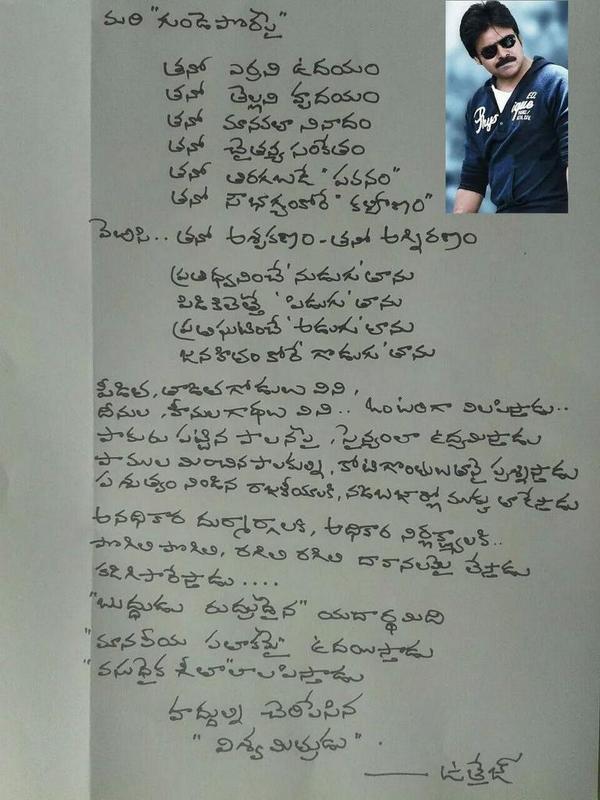 మరి "గుండెపొరపై"
తనో ఎర్రని ఉదయం
తనో తెల్లని హృదయం
తనో మానవతా నినాదం
తనో చైతన్య సంకేతం
తనో తిరగబడే "పవనం"
తనో సౌభాగ్యంకోరే "కళ్యాణం"
వెరసి.. తనో అశ్రుకణం - తనో అగ్నిరణం
ప్రతిధ్వనించే 'నుడుగు' తాను
పిడికిలెత్తే 'పిడుగు' తాను
ప్రతిఘటించే 'అడుగు' తాను
జనహితం కోరే 'గొడుగు' తాను
పీడిత, తాడిత గోడులు విని,
దీనుల, హీనుల గాథలు విని.. ఒంటరిగా విలపిస్తాడు..
పాకురు పట్టిన పాలనపై, సైన్యంలా ఉద్యమిస్తాడు
పాముల మించిన పాలకుల్ని, కోటిగొంతుకలై ప్రశ్నిస్తాడు
పశుత్వం నిండిన రాజకీయాలకి, నడిబజార్లో ముక్కు తాడేస్తాడు
అనధికార దుర్మార్గాలకి, అధికార నిర్లక్ష్యాలకి..
పొగిలి పొగిలి, రగిలి రగిలి దావానలమై లేస్తాడు
కడిగిపారేస్తాడు ....
"బుద్ధుడు రుద్రుడైన" యదార్థమిది
"మానవీయ పతాకమై" ఉదయిస్తాడు
"వసుధైక గీతా"లాలపిస్తాడు
హద్దుల్ని చెరిపేసిన
"విశ్వమిత్రుడు".
— ఉత్తేజ్